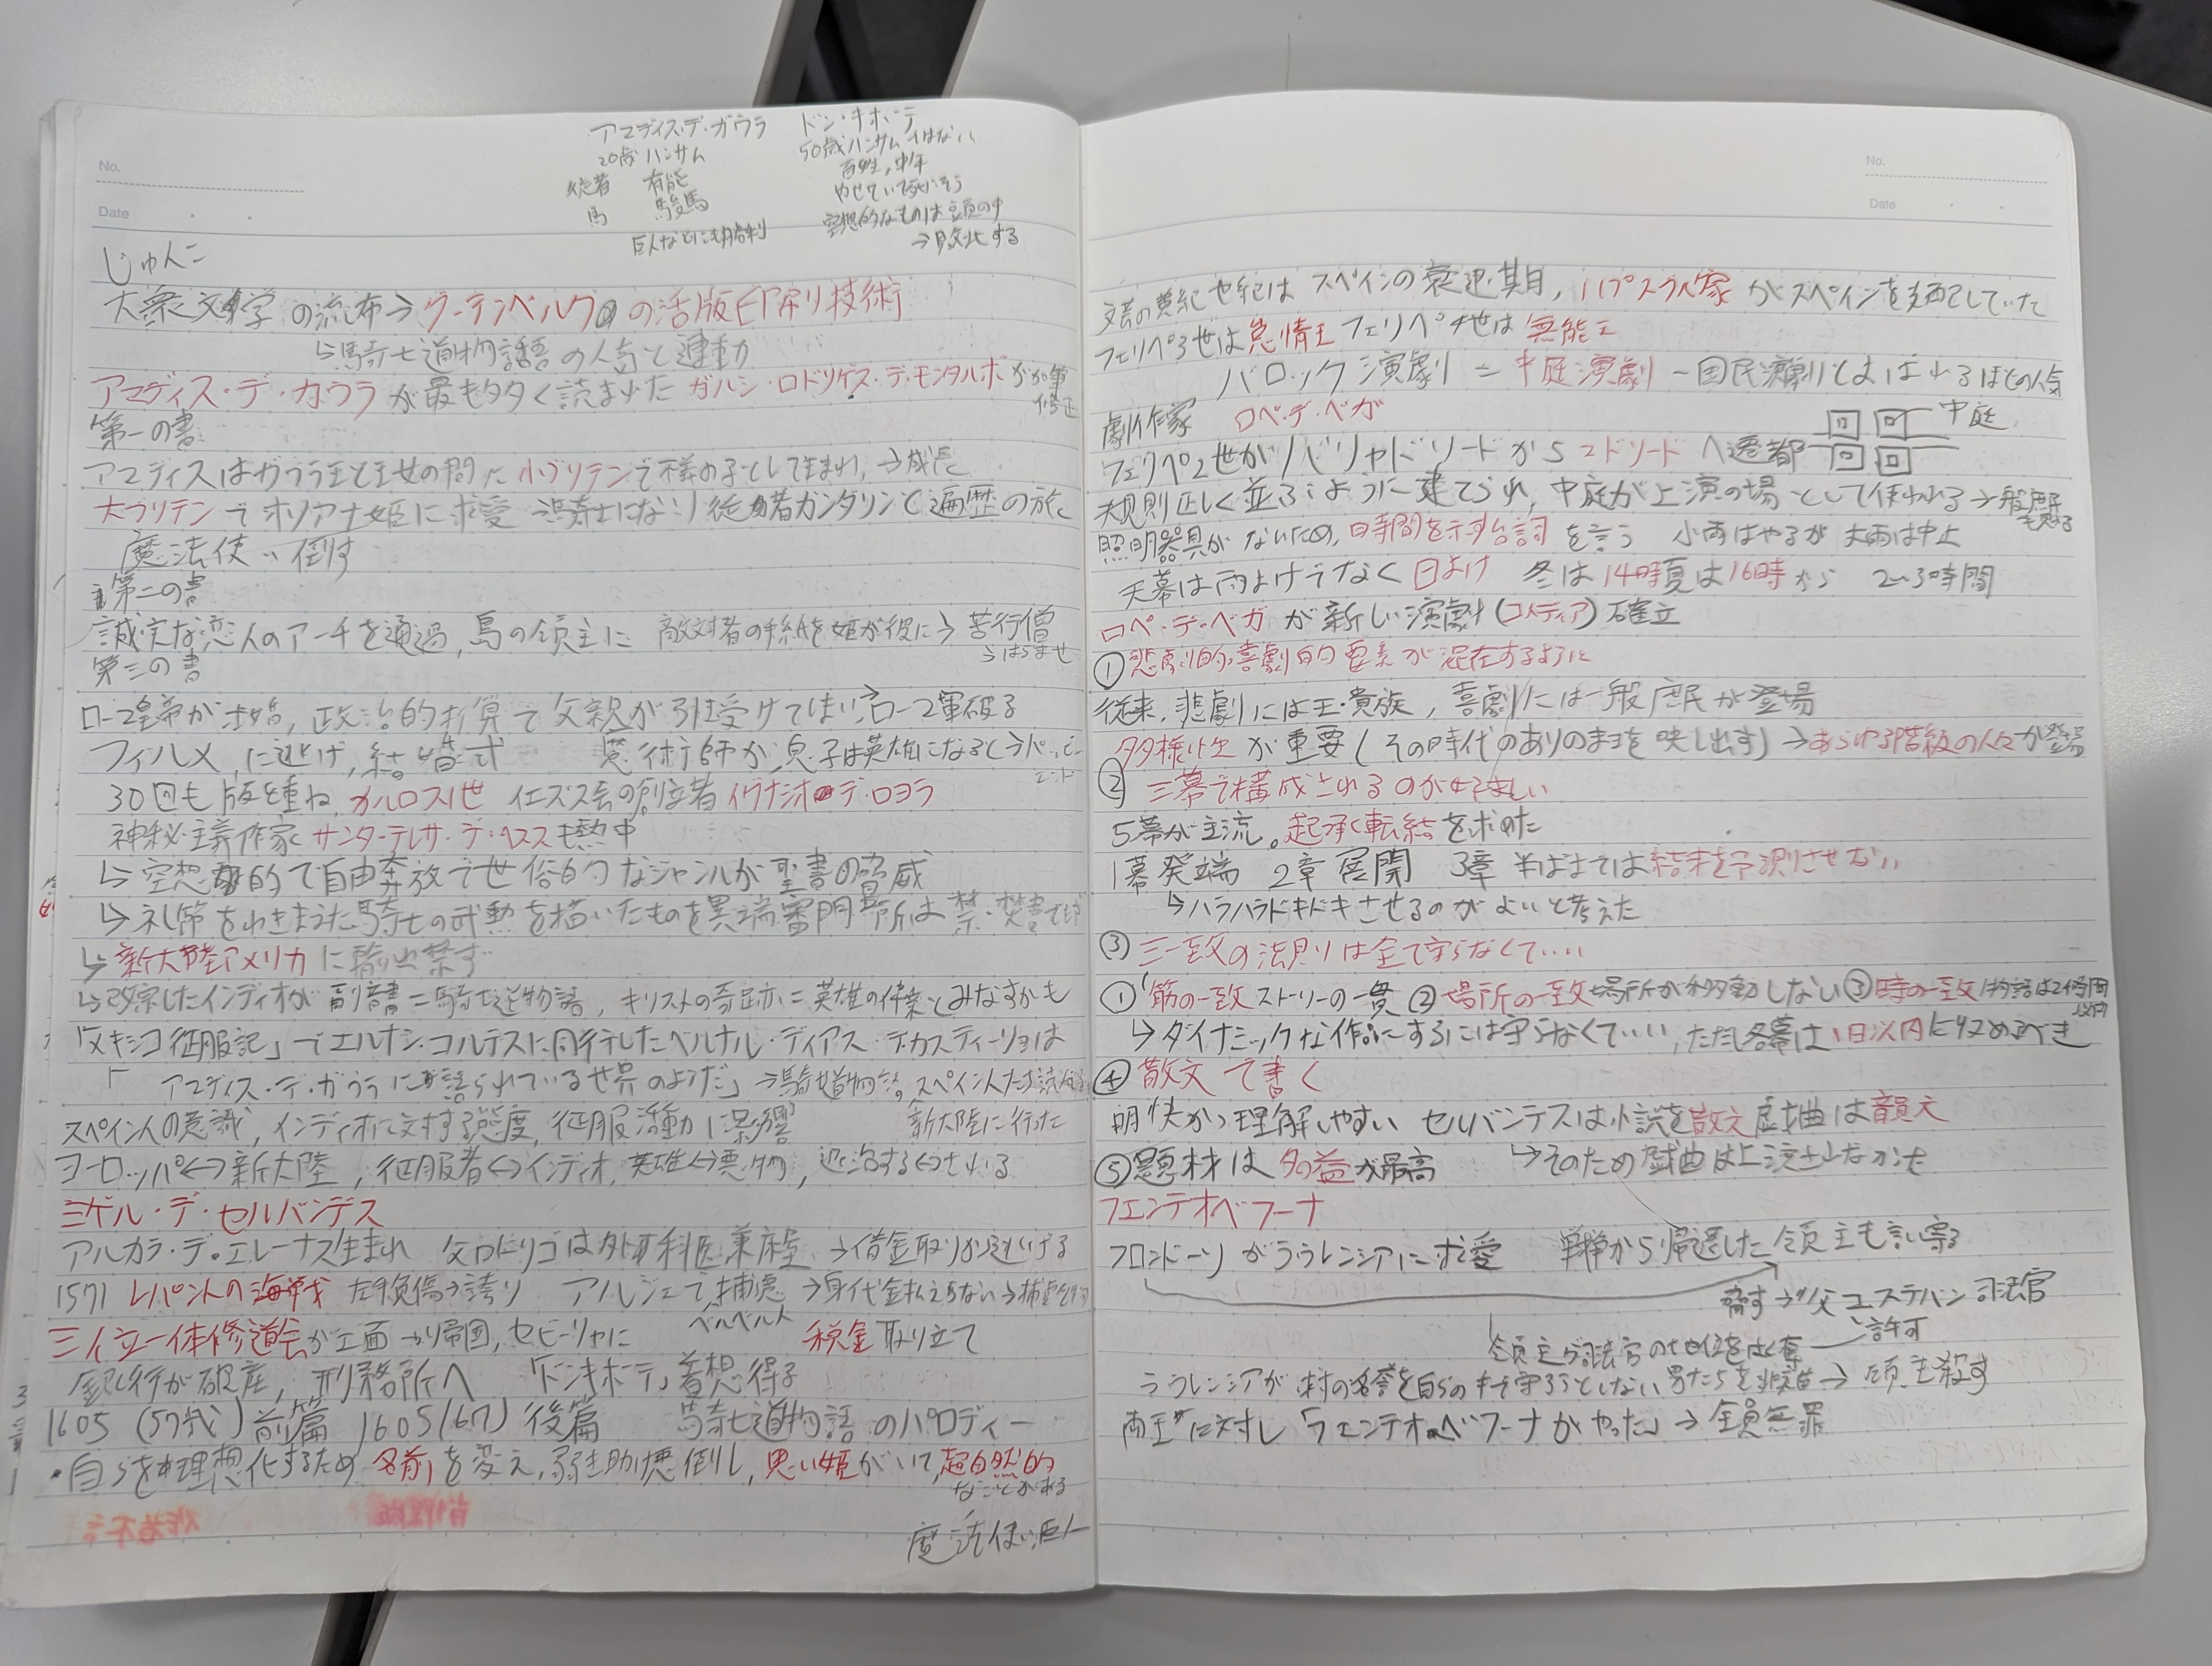 No.
Date
アマディス・デ・ガウラ
20歳 ハンサム
従者 有能
馬 駿馬
巨人などにも勝利
ドン・キホーテ
50歳ハンサムではない
百姓,中年
やせていて死にそう
空想的なものは頭の中
→敗北する
じゅんこ
大衆文学の流布→グーテンベルクの活版印刷技術
↳騎士道物語の人気と連動
アマディス・デ・ガウラが最も多く読まれた ガルシ・ロドリゲス・デ・モンタルボが加筆修正
第一の書
アマディスはガウラ王と王女の間に小ブリテンで様の子として生まれ,→成長
大ブリテンでオリアナ姫に求愛 騎士になり従者ガンダリンと遍歴の旅に
魔法使い倒す
第二の書
誠実な恋人のアーチを通過,島の領主に 敵対者の手紙を姫が彼に→苦行僧
第三の書
ローマ皇帝が求婚,政治的打算で父親が引受けてしまい→ローマ軍破る
フィルメ,に逃げ,結婚式 魔術師が,息子は英雄になると→ハッピーエンド
30回も版を重ね,カルロス1世 イエズス会の創立者イグナシオ・デ・ロヨラ
神秘主義作家サンタ・テレサ・デ・ヘススも熱中
↳空想的で自由奔放で世俗的なジャンルが聖書の脅威
↳礼節をわきまえた騎士の武勲を描いたものを異端審問所は禁・焚書でき
↳新大陸アメリカに輸出禁ず
↳改宗したインディオが福音書=騎士道物語,キリストの奇跡=英雄の偉業とみなすかも
「メキシコ征服記」でエルナン・コルテスに同行したベルナル・ディアス・デ・カスティーリョは
「アマディス・デ・ガウラに語られている世界のようだ」→騎士道物語。スペイン人たち
スペイン人の意識,インディオに対する態度,征服活動に影響 新大陸に行った
ヨーロッパ↔新大陸,征服者↔インディオ,英雄↔悪物,退治する↔される
ミゲル・デ・セルバンテス
アルカラ・デ・エレーナス生まれ 父ロドリゴは外科医兼床屋 →借金取りから逃げる
1571 レパントの海戦 左手負傷→誇り アルジェで捕虜 →身代金払えらない→捕虜
ベルベル人
三位一体修道会が工面→帰国,セビーリャに 税金取り立て
銀行が破産,刑務所へ 「ドンキホーテ」着想得る
1605 (57歳) 前篇 1605(67) 後篇 騎士道物語のパロディー
・自らを理想化するため名前を変え,弱き助け悪倒し,思い姫がいて,超自然的なことがある
魔法使い,巨人
No.
Date
文芸の黄紀世紀はスペインの衰退期目,ハプスブルク家がスペインを支配していた
フェリペ3世は怠惰王 フェリペ4世は無能王
バロック演劇=中庭演劇−国民演劇とよばれるほどの人気
劇作家 ロペ・デ・ベガ
中庭
フェリペ2世がバリャドリードからマドリードへ遷都
規則正しく並ぶように建てられ,中庭が上演の場として使われる→一般庶民も見る
照明器具がないため,時間を示す台詞を言う 小雨はやるが大雨は中止
天幕は雨よけでなく日よけ 冬は14時夏は16時から 2~3時間
ロペ・デ・ベガが新しい演劇(コメディア)確立
①悲劇的喜劇的要素が混在するように
従来,悲劇には王・貴族,喜劇には一般庶民が登場
多様性が重要(その時代のありのままを映し出す)→あらゆる階級の人々が登場
②三幕で構成されるのが好ましい
5幕が主流。起承転結を求めた
1幕発端 2章展開 3章半ばまでは結末を予測させない
↳ハラハラドキドキさせるのがよいと考えた
③三一致の法則は全て守らなくていい
①筋の一致 ストーリーの一貫 ②場所の一致 場所が移動しない ③時の一致 物語は24時間以内
↳ダイナミックな作品にするには守らなくていい,ただし各幕は1日以内に収めるべき
④散文で書く
明快かつ理解しやすい セルバンテスは小説を散文 戯曲は韻文
⑤題材は名誉が最高 ↳そのため戯曲は上演されなかった
フエンテオベフーナ
フロンドーソがラウレンシアに求愛 戦争から帰還した領主も言い寄る
脅す→父エステバン司法官
許可
領主が司法官の地位をはく奪
ラウレンシアが村の名誉を自らの手で守ろうとしない男たちを非難→領主殺す
両王に対し「フエンテオベフーナがやった」→全員無罪